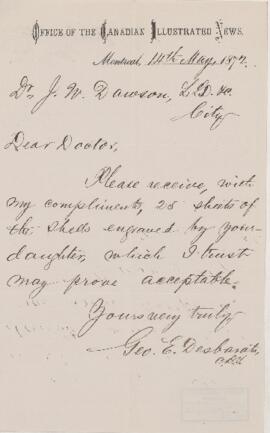 Office of the Canadian Illustrated News.
Montreal, 14th May, 1872.
Dr. J. W. Dawson, L.D. &c.
City
Dear Doctor,
Please receive, with
my compliments, 25 sheets of
the shells engraved by your
daughter, which I trust
may prove acceptable.
Yours very truly
Geo. E. Desbarats